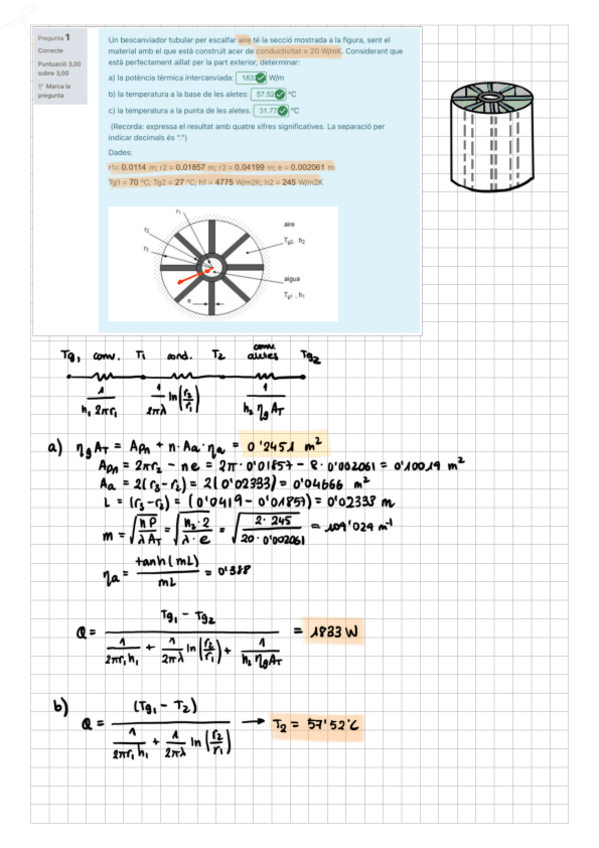 Pregunta 1
Correcte
Puntuació 3,00 sobre 3,00
Marca la pregunta
Un bescanviador tubular per escalfar aire té la secció mostrada a la figura, sent el
material amb el que està construït acer de conductivitat = 20 W/mK. Considerant que
està perfectament aïllat per la part exterior, determinar:
a) la potència tèrmica intercanviada: 1833 W/m
b) la temperatura a la base de les aletes: 57.52 ºC
c) la temperatura a la punta de les aletes. 31.77 ºC
(Recorda: expressa el resultat amb quatre xifres significatives. La separació per
indicar decimals és ".")
Dades:
r1= 0.0114 m; r2 = 0.01857 m; r3 = 0.04199 m; e = 0.002061 m
Tg1 = 70 ºC; Tg2 = 27 ºC; h1 = 4775 W/m2K; h2 = 245 W/m2K
r1
r2
r3
e
aire
Tg2, h2
aigua
Tg1, h1
Tg1 conv. T1 cond. T2 conv. aletes Tg2
1/(h1 2πr1) 1/(2πλ) ln(r2/r1) 1/(h2 ηg AT)
a) ηg AT = Apn + n·Aa·ηa = 0'2451 m²
Apn = 2πr2 − ne = 2π·0'01857 − 8·0'002061 = 0'10019 m²
Aa = 2(r3−r2) = 2(0'02333) = 0'04666 m²
L = (r3−r2) = (0'0419 − 0'01857) = 0'02333 m
m = √(hP/(λ AT)) = √(h2·2/(λ·e)) = √(2·245/(20·0'002061)) = 109'029 m⁻¹
ηa = tanh(mL)/(mL) = 0'388
Q = (Tg1 − Tg2)/(1/(2πr1h1) + 1/(2πλ) ln(r2/r1) + 1/(h2 ηg AT)) = 1833 W
b) Q = (Tg1 − T2)/(1/(2πr1h1) + 1/(2πλ) ln(r2/r1)) → T2 = 57'52ºC